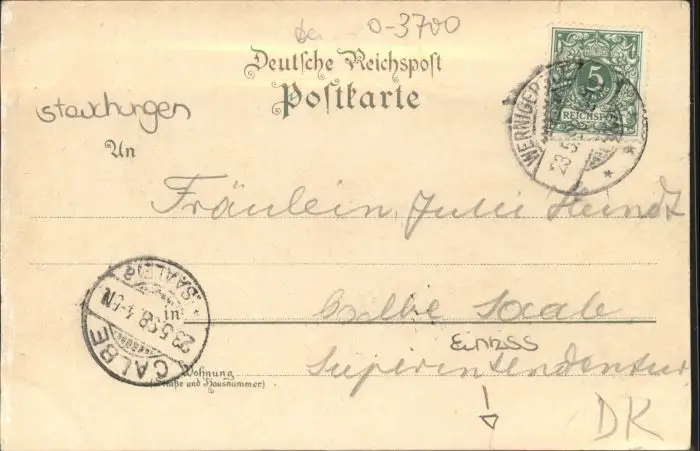 0-3700
Deutsche Reichspost
Postkarte
5
REICHSPOST
WERNIGERODE
23.5.98
Stauchungen
An
Fräulein Julie Heindt
in Calbe Saale
CALBE (SAALE)
23.5.98 4-5N
Einriss
Wohnung
(Straße und Hausnummer)
Superintendentur
DK